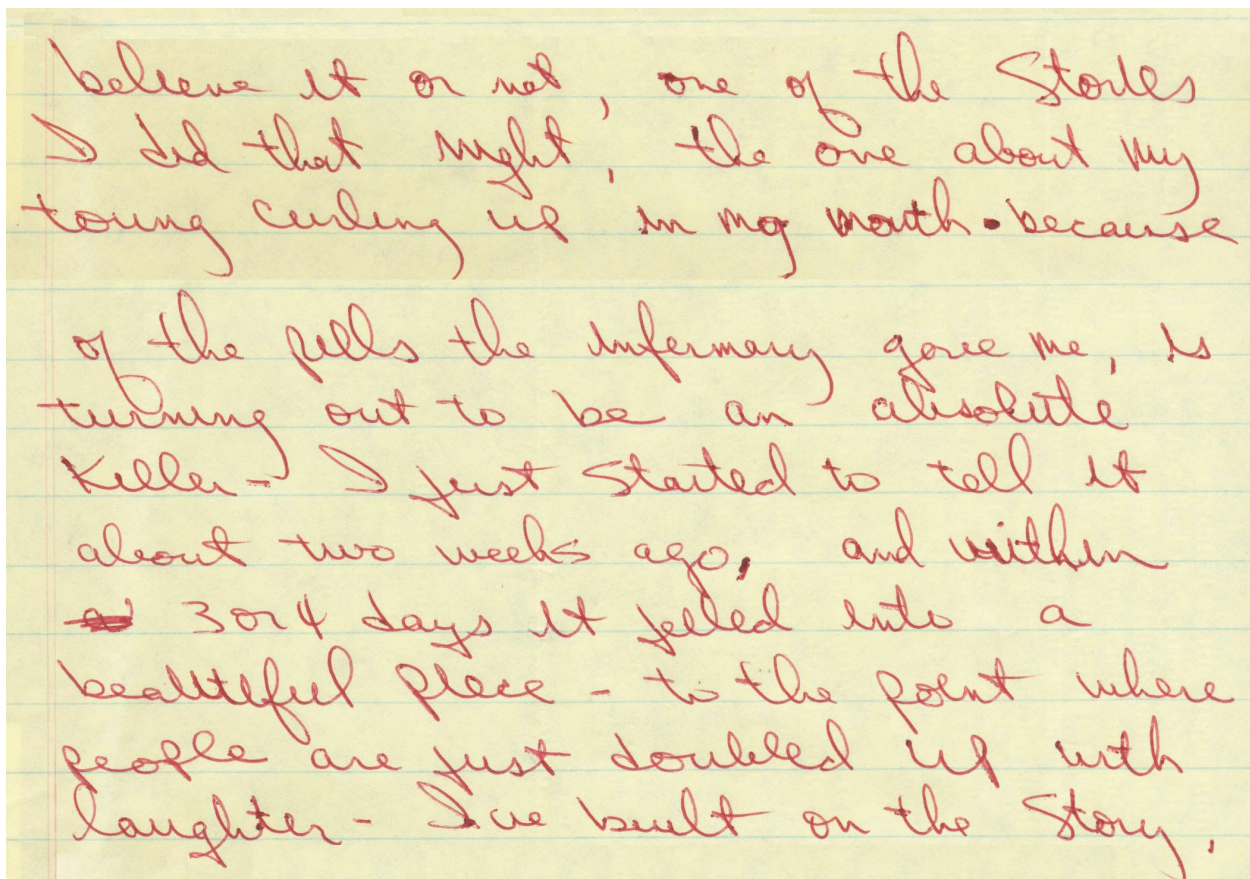 believe it or not, one of the Stories
I did that night, the one about my
toung curling up in my mouth because
of the pills the infermary gave me, is
turning out to be an absolute
Killer - I just Started to tell it
about two weeks ago, and within
3 or 4 days it jelled into a
beautiful piece - to the point where
people are just doubled up with
laughter - I've built on the Story,